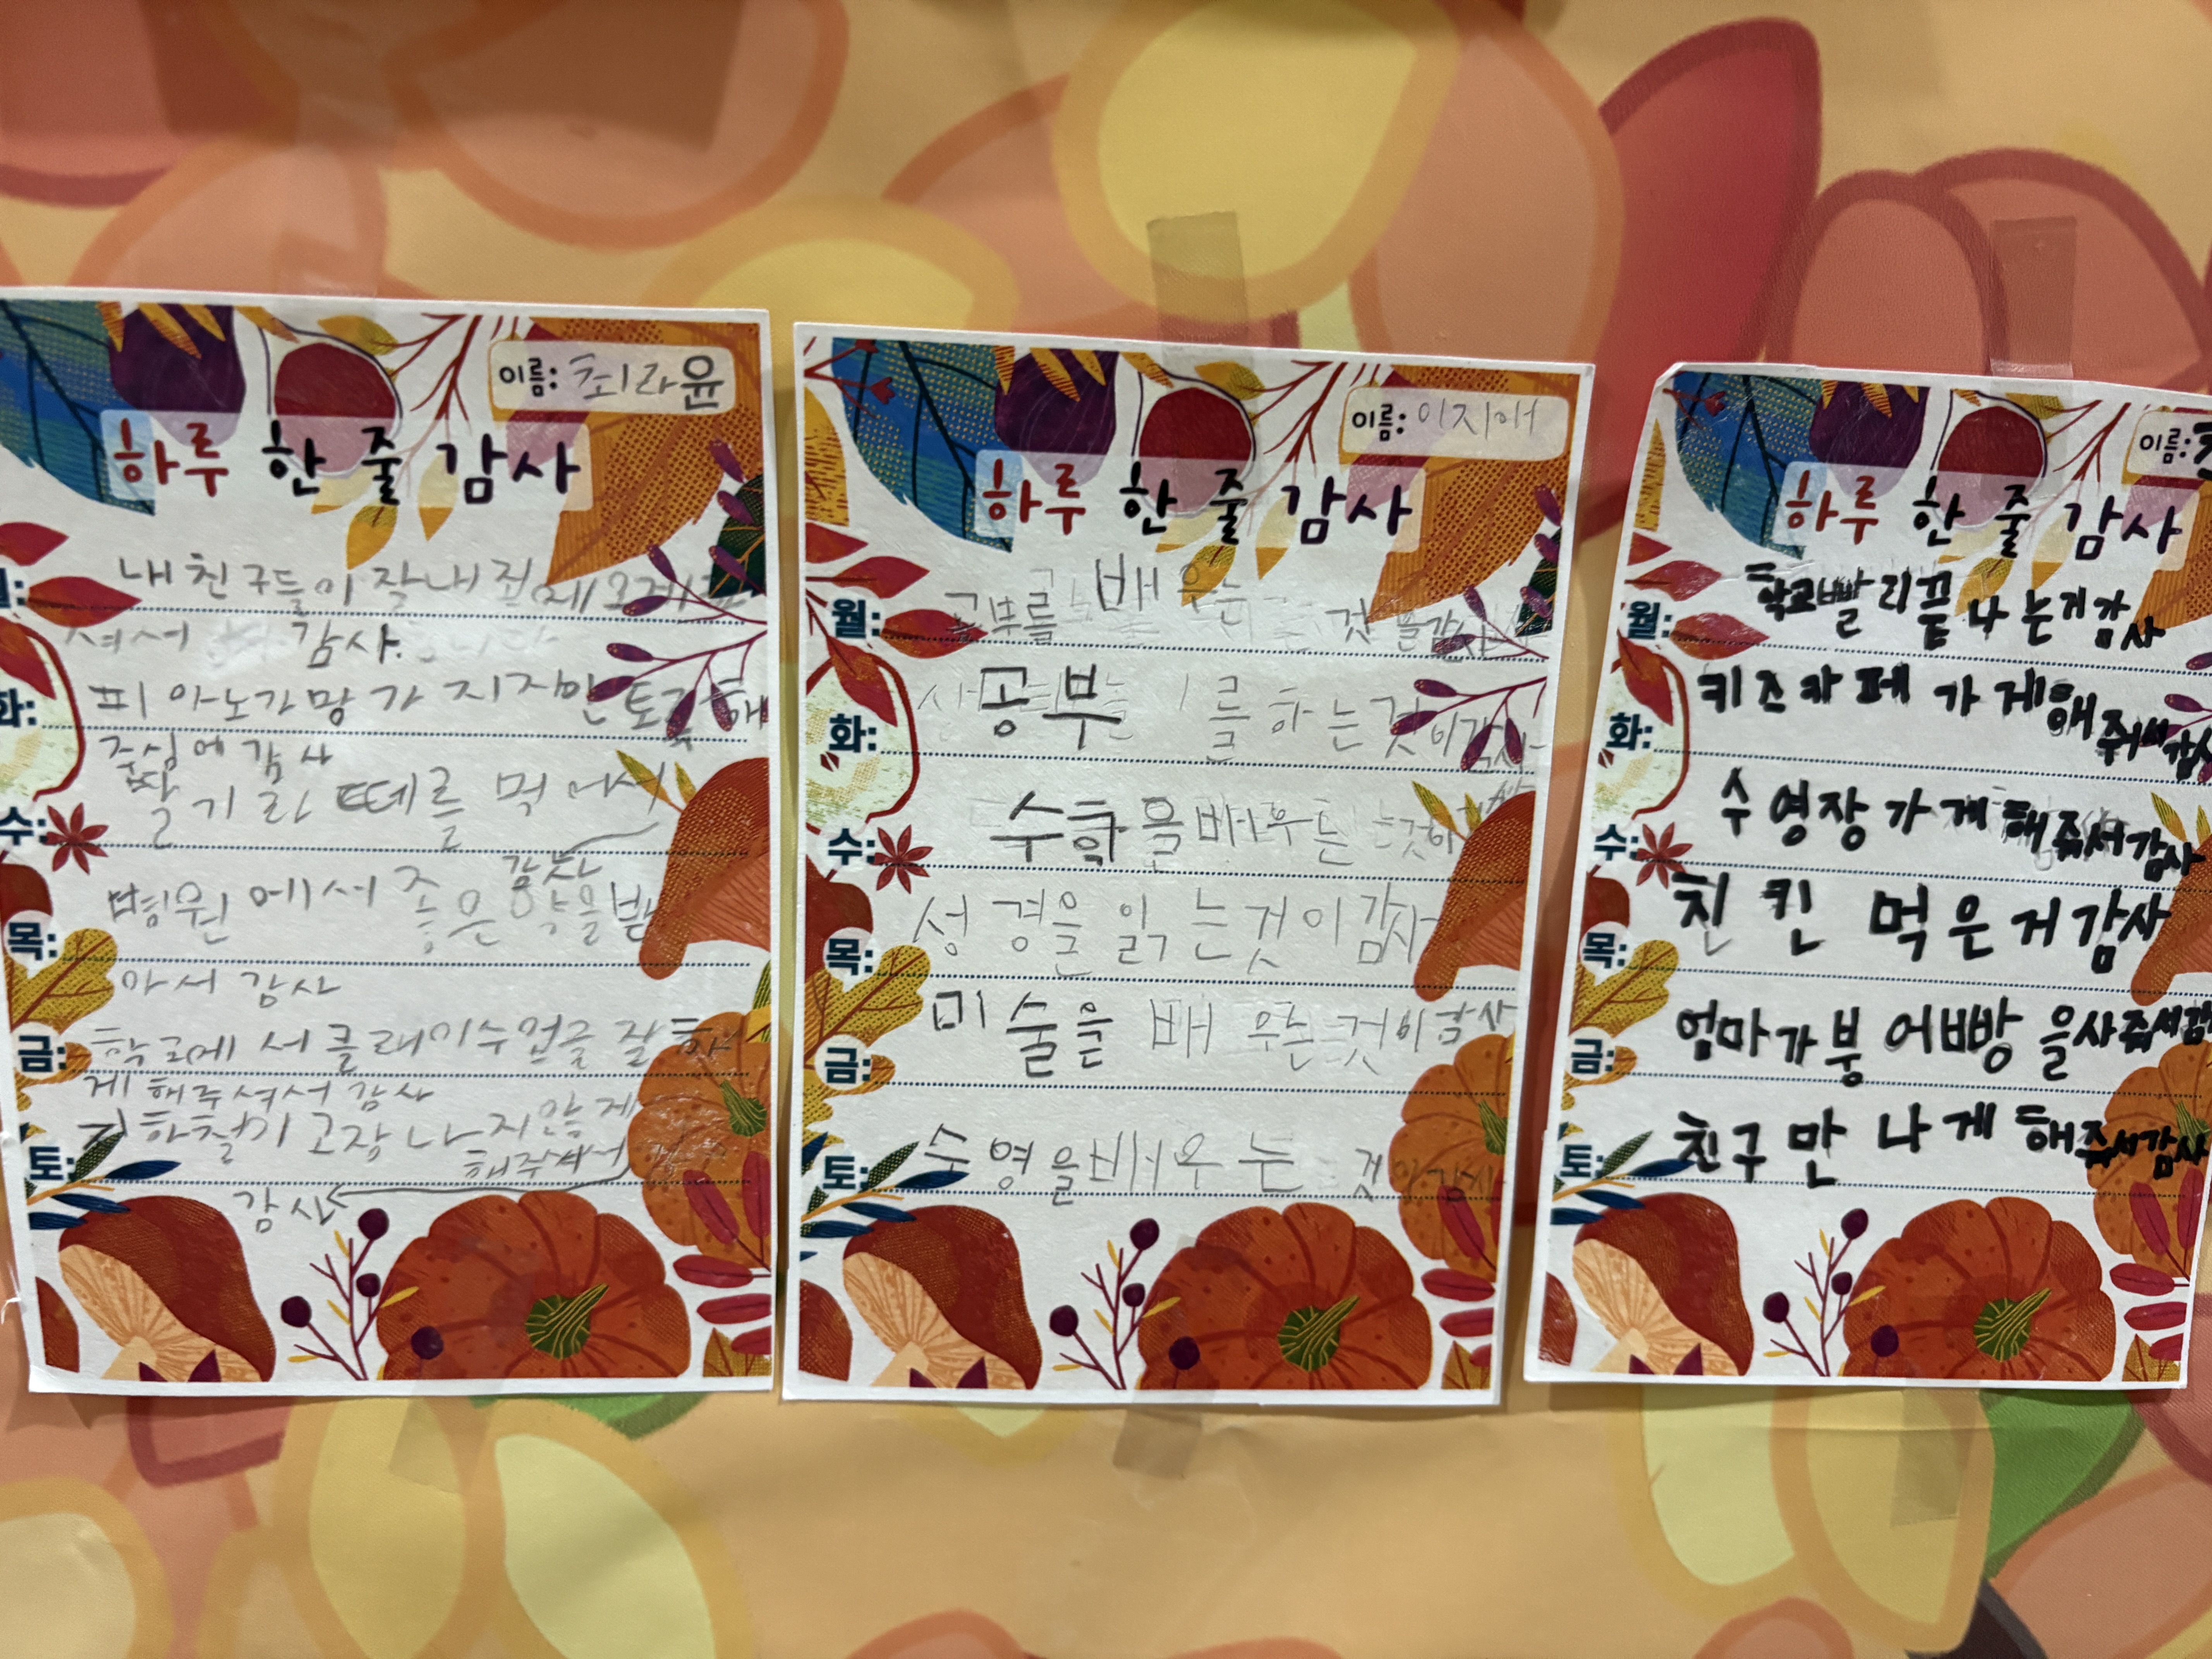 이름: 최라윤
하루 한 줄 감사
월: 내 친구들이 잘 내
셔서 감사.
화: 피아노가 망가지지만
주심에 감사
수: 딸기라떼를 먹어서
감사
목: 병원에서 좋은 약을 받
아서 감사
금: 학교에서 클레이수업을 잘 하
게 해주셔서 감사
토: 지하철이 고장나지않게
해주셔서
감사
이름: 이지
하루 한 줄 감사
월: 공부를 배우는 것 감사
화: 공부를 하는것이 감사
수: 수학을 배우는것이
목: 성경을 읽는것이 감사
금: 미술을 배우는것이 감사
토: 수영을 배우는 것이 감사
이름:
하루 한 줄 감사
월: 학교 빨리 끝나는거 감사
화: 키즈카페 가게 해 줘서 감사
수: 수영장 가게 해줘서 감사
목: 친킨 먹은거 감사
금: 엄마가 붕어빵을 사줘서 감
토: 친구 만나게 해줘서 감사